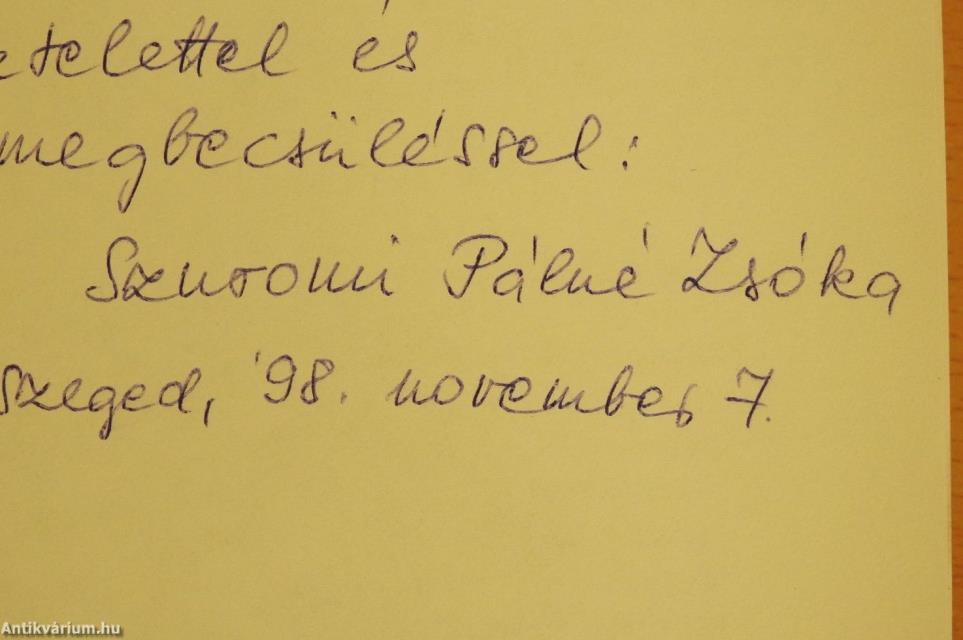 etelettel és
megbecsüléssel:
Szuromi Pálné Zsóka
Szeged, '98. november 7.
Antikvárium.hu